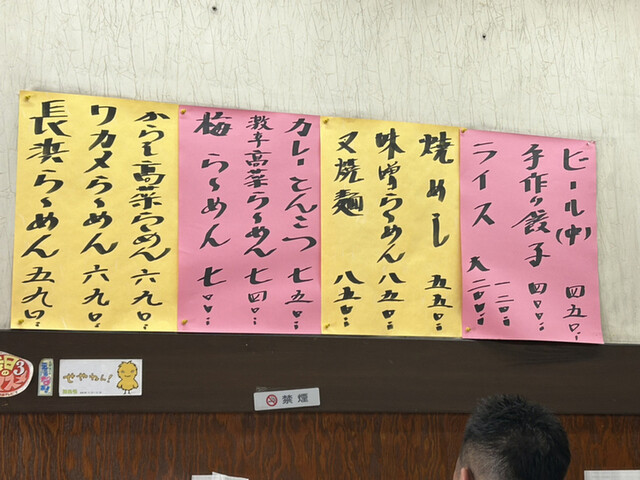 ビール(中) 四五〇.
手作り餃子 四〇〇.
ライス 一二〇. 大二〇〇.
焼めし 五五〇.
味噌らーめん 八五〇.
叉焼麺 八五〇.
カレーとんこつ 七五〇.
激辛高菜らーめん 七四〇.
梅らーめん 七〇〇.
からし高菜らーめん 六九〇.
ワカメらーめん 六九〇.
長浜らーめん 五九〇.
せやねん!
禁煙
3